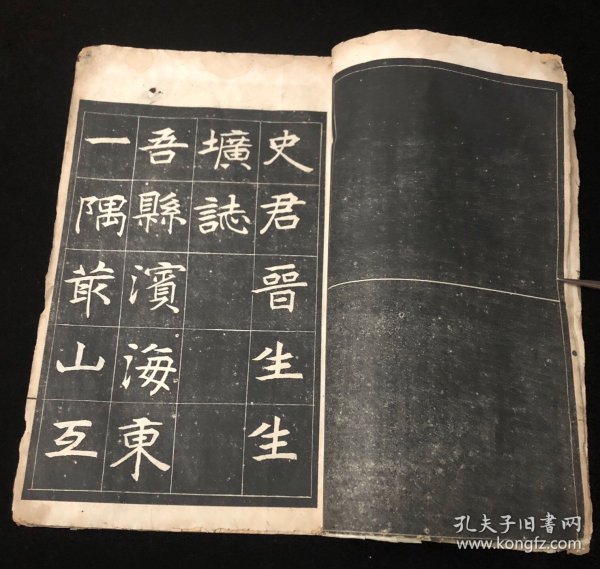 史君晉生生
壙誌
吾縣濱海東
一隅菆山互
孔夫子旧书网
www.kongfz.com